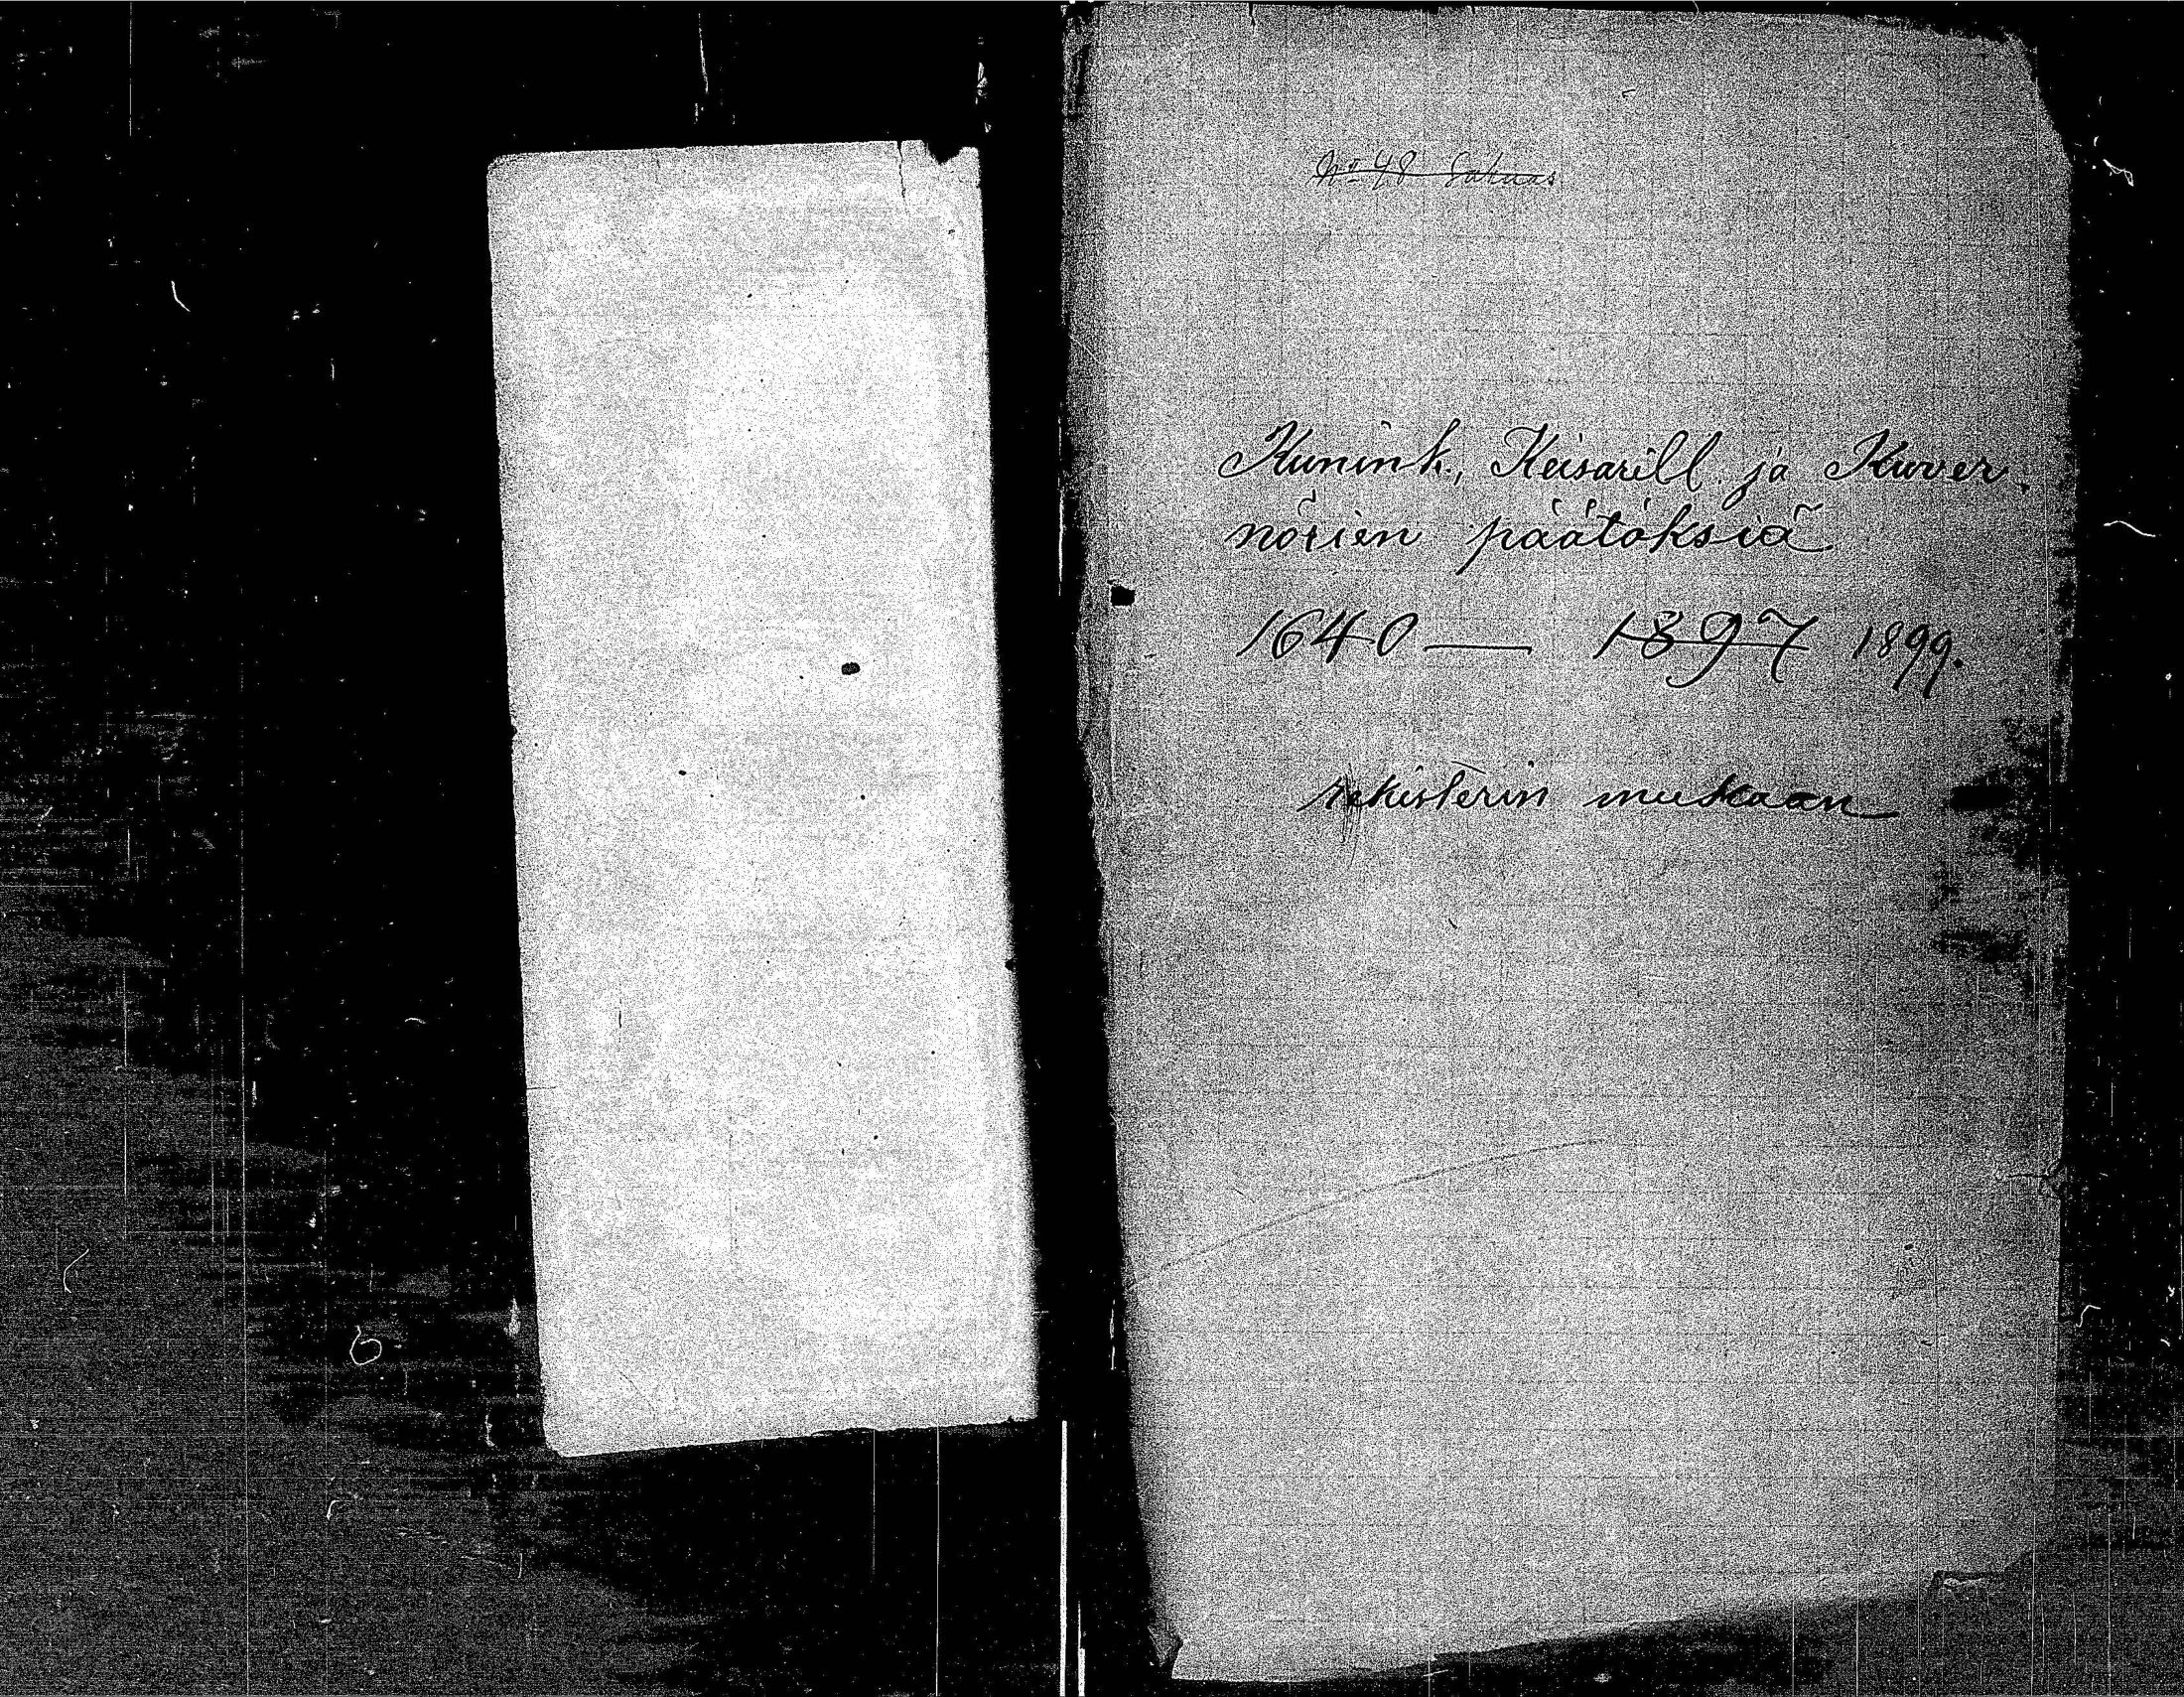 No 48
Kunink., Keisarill. ja Kuver.
nörien päätöksiä
1640 — 1897 1899.
rekisterin mukaan